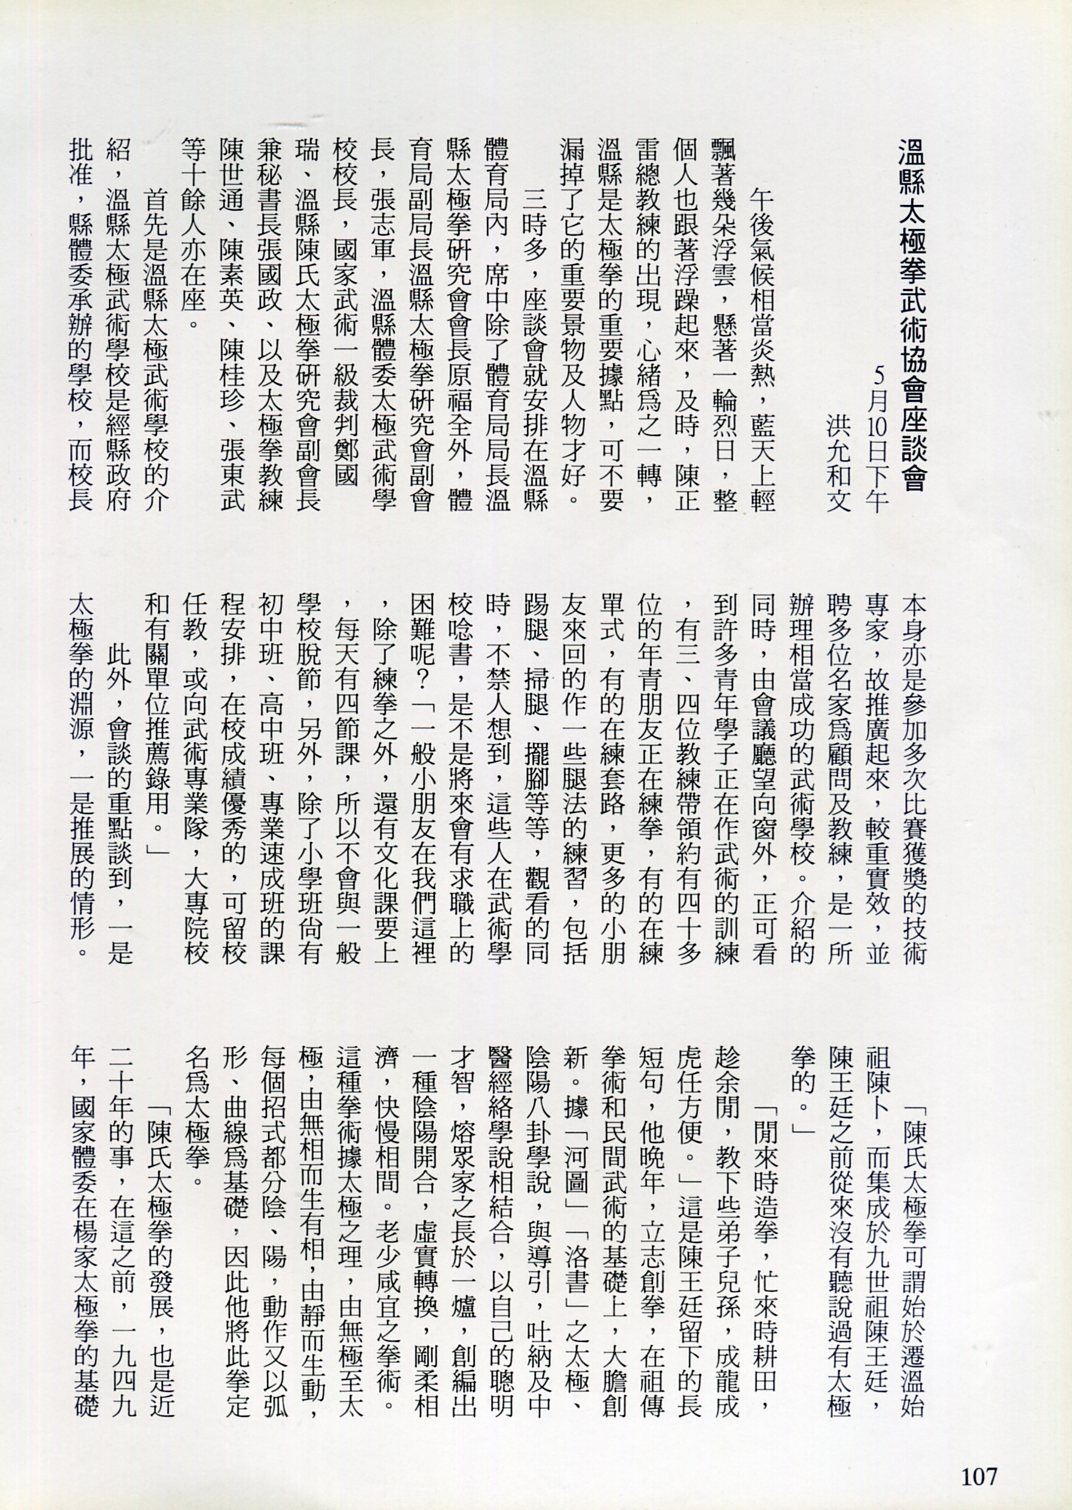 溫縣太極拳武術協會座談會
5月10日下午
洪允和文
午後氣候相當炎熱，藍天上輕
飄著幾朵浮雲，懸著一輪烈日，整
個人也跟著浮躁起來，及時，陳正
雷總教練的出現，心緒為之一轉，
溫縣是太極拳的重要據點，可不要
漏掉了它的重要景物及人物才好。
三時多，座談會就安排在溫縣
體育局內，席中除了體育局局長溫
縣太極拳研究會會長原福全外，體
育局副局長溫縣太極拳研究會副會
長，張志軍，溫縣體委太極武術學
校校長，國家武術一級裁判鄭國
瑞、溫縣陳氏太極拳研究會副會長
兼秘書長張國政、以及太極拳教練
陳世通、陳素英、陳桂珍、張東武
等十餘人亦在座。
首先是溫縣太極武術學校的介
紹，溫縣太極武術學校是經縣政府
批准，縣體委承辦的學校，而校長
本身亦是參加多次比賽獲獎的技術
專家，故推廣起來，較重實效，並
聘多位名家為顧問及教練，是一所
辦理相當成功的武術學校。介紹的
同時，由會議廳望向窗外，正可看
到許多青年學子正在作武術的訓練
，有三、四位教練帶領約有四十多
位的年青朋友正在練拳，有的在練
單式，有的在練套路，更多的小朋
友來回的作一些腿法的練習，包括
踢腿、掃腿、擺腳等等，觀看的同
時，不禁人想到，這些人在武術學
校唸書，是不是將來會有求職上的
困難呢？「一般小朋友在我們這裡
，除了練拳之外，還有文化課要上
，每天有四節課，所以不會與一般
學校脫節，另外，除了小學班尚有
初中班、高中班、專業速成班的課
程安排，在校成績優秀的，可留校
任教，或向武術專業隊，大專院校
和有關單位推薦錄用。」
此外，會談的重點談到，一是
太極拳的淵源，一是推展的情形。
「陳氏太極拳可謂始於遷溫始
祖陳卜，而集成於九世祖陳王廷，
陳王廷之前從來沒有聽說過有太極
拳的。」
「閒來時造拳，忙來時耕田，
趁余閒，教下些弟子兒孫，成龍成
虎任方便。」這是陳王廷留下的長
短句，他晚年，立志創拳，在祖傳
拳術和民間武術的基礎上，大膽創
新。據「河圖」「洛書」之太極、
陰陽八卦學說，與導引，吐納及中
醫經絡學說相結合，以自己的聰明
才智，熔眾家之長於一爐，創編出
一種陰陽開合，虛實轉換，剛柔相
濟，快慢相間。老少咸宜之拳術。
這種拳術據太極之理，由無極至太
極，由無相而生有相，由靜而生動，
每個招式都分陰、陽，動作又以弧
形、曲線為基礎，因此他將此拳定
名為太極拳。
「陳氏太極拳的發展，也是近
二十年的事，在這之前，一九四九
年，國家體委在楊家太極拳的基礎
107